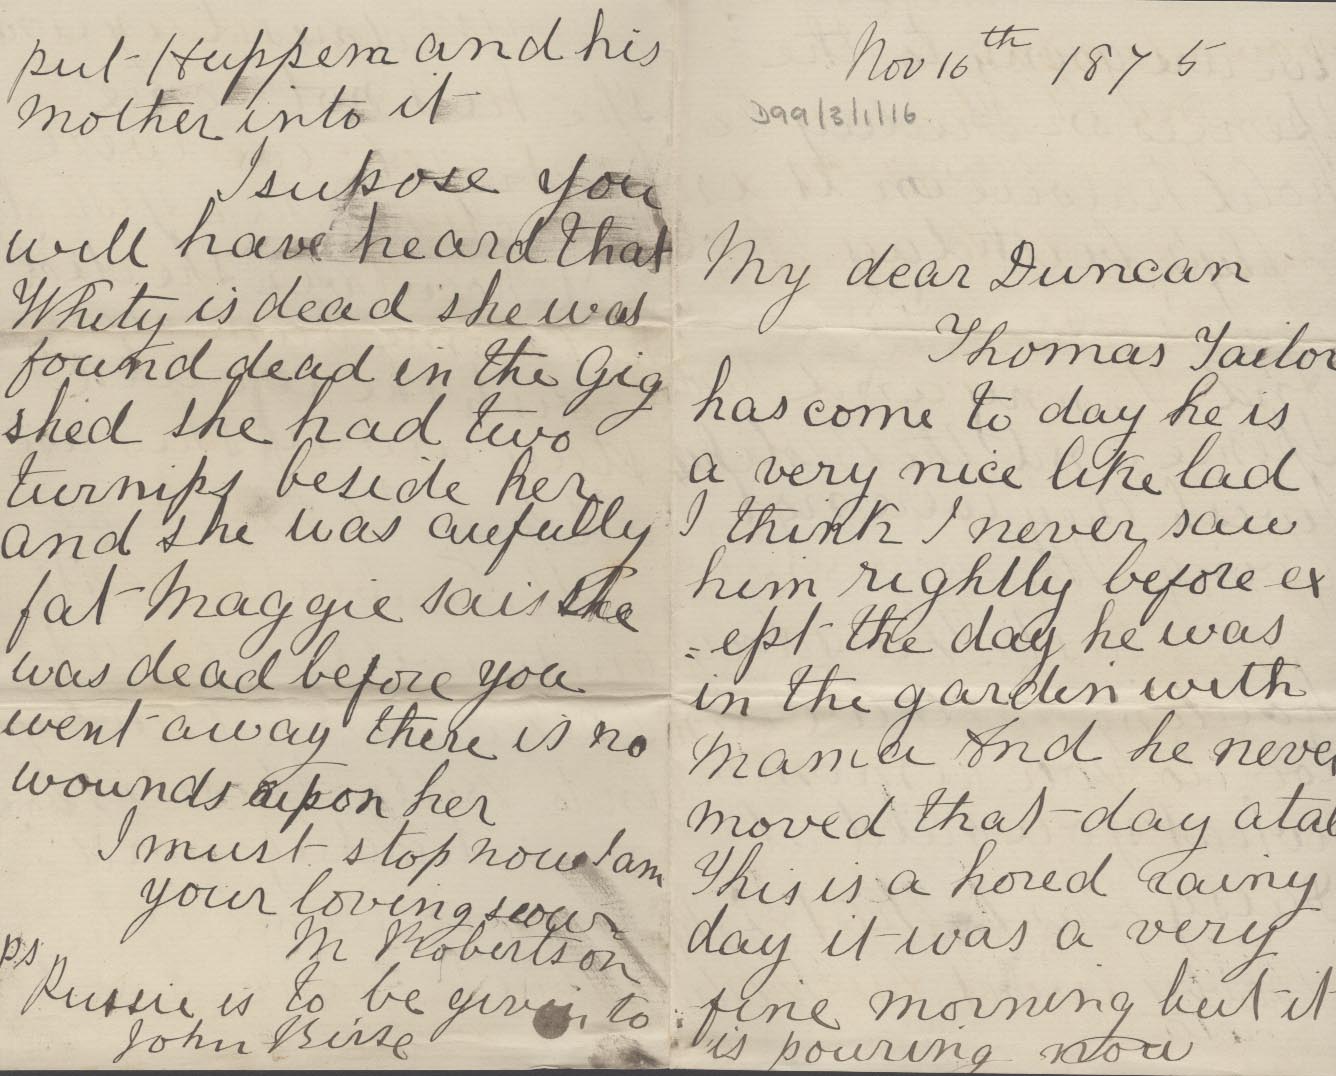 Nov 16th 1875
D99/3/1/16
My dear Duncan
Thomas Tailor
has come to day he is
a very nice like lad
I think I never saw
him rightly before ex
=ept the day he was
in the garden with
Mama And he never
moved that day atal
This is a hored rainy
day it was a very
fine morning but it
is pouring now
put Huppem and his
mother into it
I supose you
will have heard that
Whity is dead she was
found dead in the Gig
shed she had two
turnips beside her
and she was auefully
fat Maggie sais she
was dead before you
went away there is no
wounds upon her
I must stop now I am
your loving
M Robertson
ps
Pussie is to be given to
John Birse